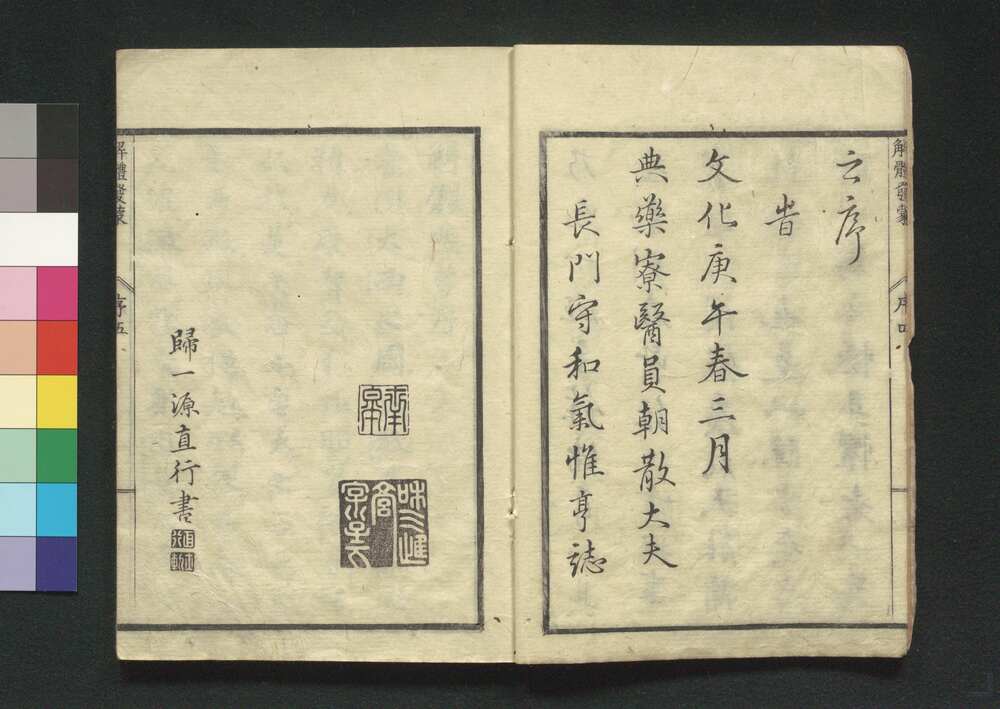 解體發蒙
序四
之序
旹
文化庚午春三月
典藥寮醫員朝散大夫
長門守和氣惟亨誌
歸一源直行書
解體發蒙
序五